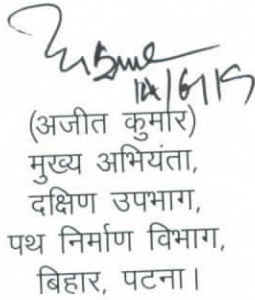 14/6/19
(अजीत कुमार)
मुख्य अभियंता,
दक्षिण उपभाग,
पथ निर्माण विभाग,
बिहार, पटना।